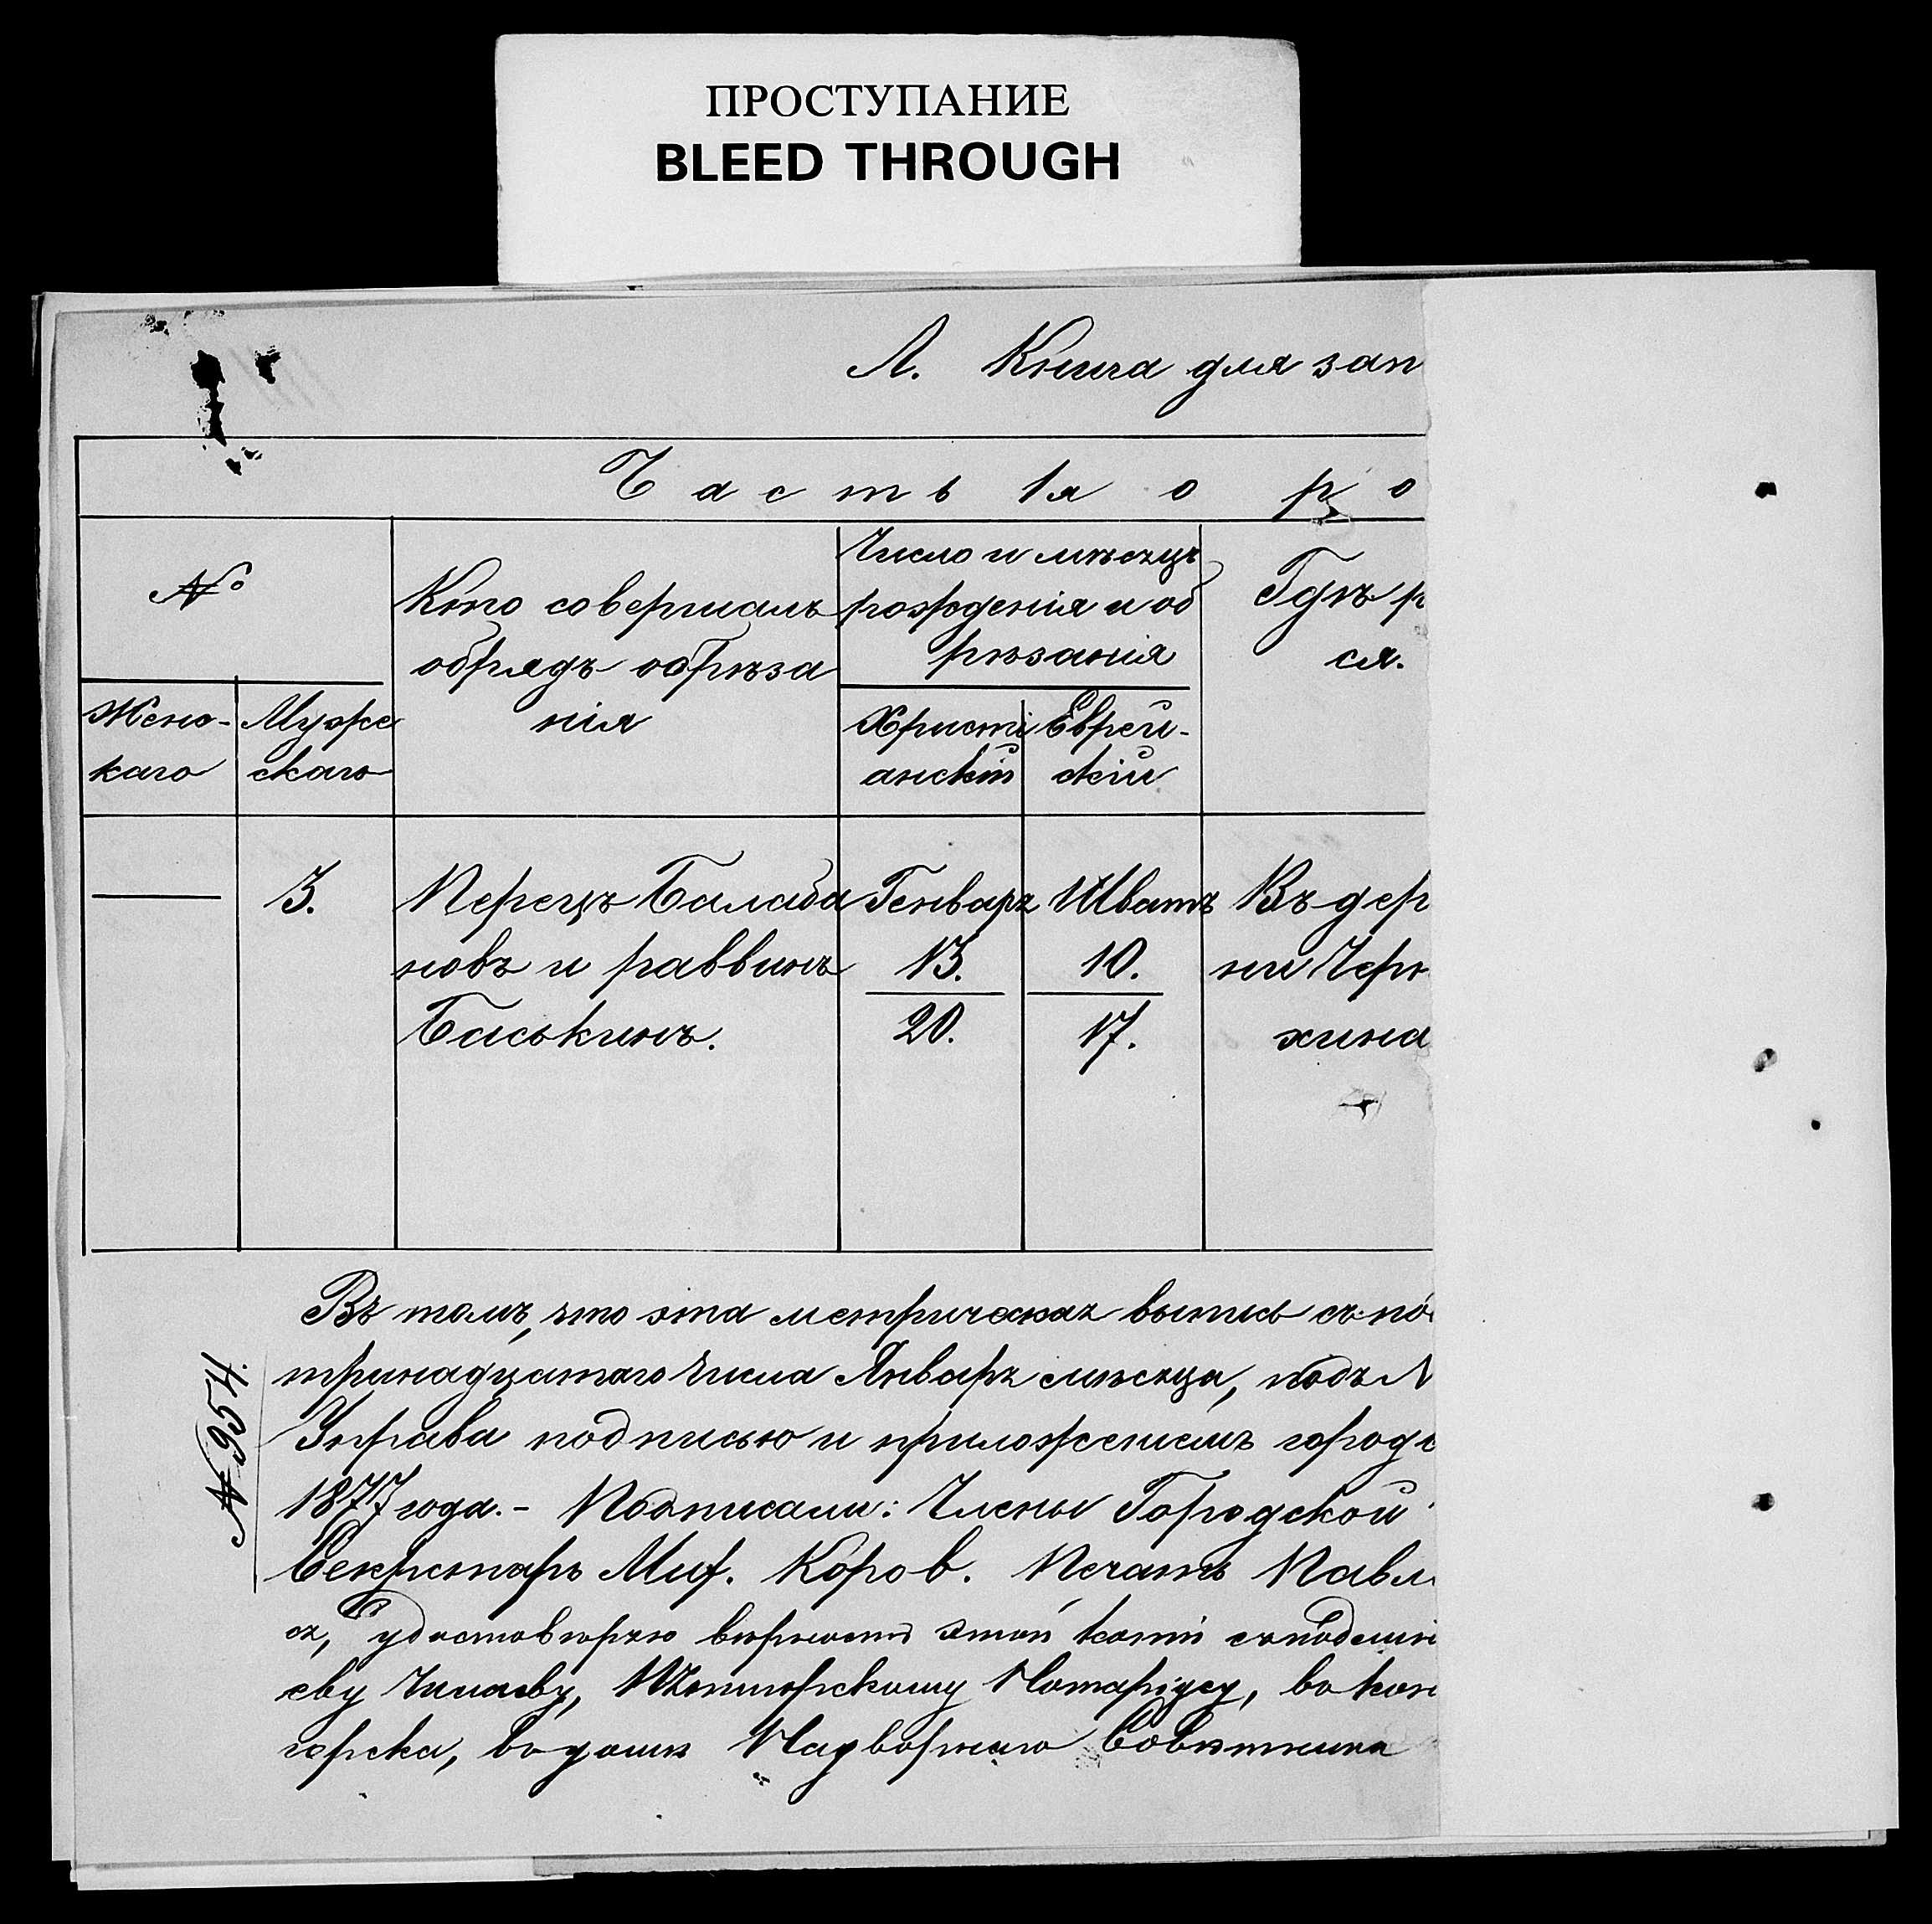 ПРОСТУПАНИЕ
BLEED THROUGH
А. Книга для зап
Часть 1я о р о
№
Женс-
каго
Муже
скаго
Кто совершалъ
обрядъ обрѣза
нія
Число и мѣсяцъ
рожденія и об
рѣзанія
Христі
анскій
Еврей-
скій
Гдѣ р
ся.
3.
Перецъ Балаба
новъ и раввинъ
Баськинъ.
Генваря
13.
20.
Шватъ
10.
17.
Въ дер
ни Черн
хина
№ 954.
Въ томъ, что эта метрическая выпись съ по
тринадцатаго числа Января мѣсяца, подъ №
Управа подписью и приложеніемъ городс
1877 года. - Подписали: Члены Городской
Секретарь Миф. Коров. Печать Павл
ск, удостовѣряю вѣрность этой копіи съ подлин
еву Нотаріусу, въ кон
горска, въ домѣ Надворнаго Совѣтника